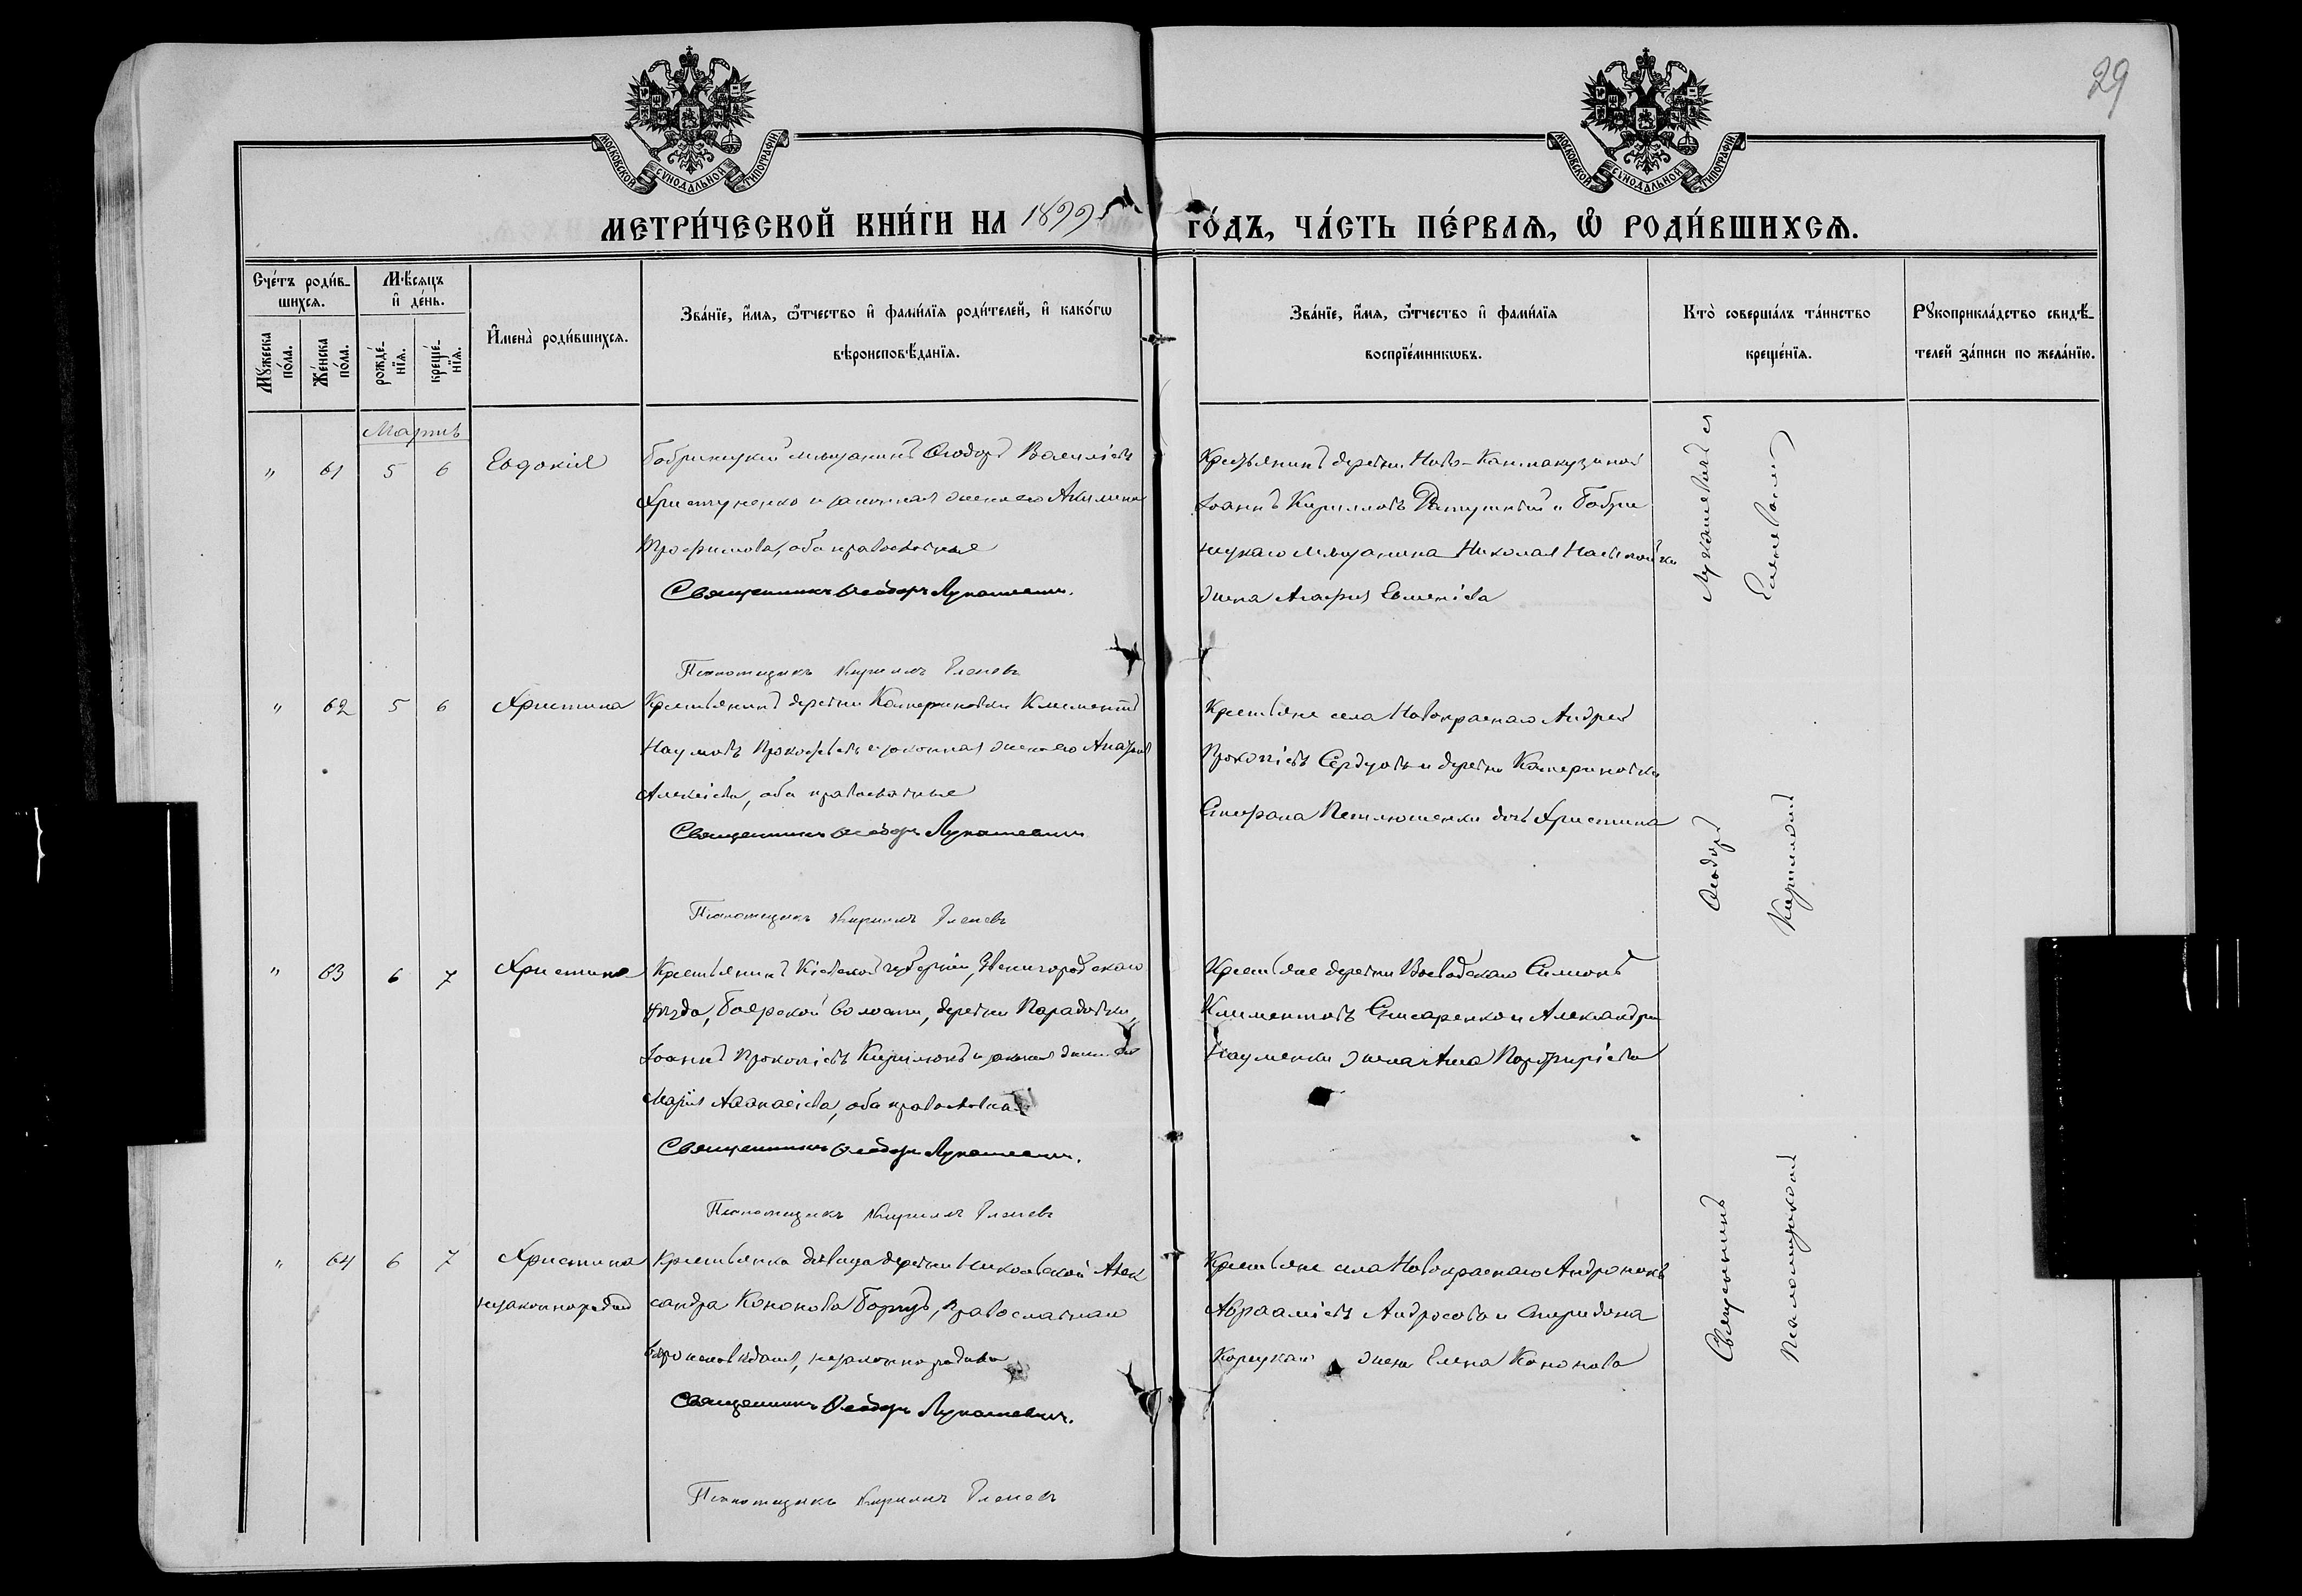 29
МОСКОВСКОЙ СѴНОДАЛЬНОЙ ТИПОГРАФІИ
МОСКОВСКОЙ СѴНОДАЛЬНОЙ ТИПОГРАФІИ
МЕТРИ́ЧЕСКОЙ КНИ́ГИ НА 1899 ГО́ДЪ, ЧА́СТЬ ПЕ́РВАѦ, Ѽ РОДИ́ВШИХСѦ.
Сче́тъ роди́вшихсѧ.
Мꙋ́жеска по́ла.
Же́нска по́ла.
Мѣ́сяцъ и҆ де́нь.
рожде́-нїѧ.
креще́-нїѧ.
И҆мена̀ роди́вшихсѧ.
Зва́нїе, и҆́мѧ, ѻ҆́тчество и҆ фамі́лїѧ роди́телей, и҆ како́гѡ
вѣроисповѣ́данїѧ.
Зва́нїе, и҆́мѧ, ѻ҆́тчество и҆ фамі́лїѧ
воспрїе́мникѡвъ.
Кто̀ соверша́лъ та́инство
креще́нїѧ.
Рꙋкоприкла́дство свидѣ́-
телей за́писи по жела́нїю.
Мартъ
" 61 5 6 Евдокія
Бобринецкій мѣщанинъ Ѳеодоръ Василіевъ
Христуненко и законная жена его Акилина
Трофимова, оба православные
Священникъ Ѳеодоръ Лукашевичъ.
Псаломщикъ Кириллъ Еленевъ
Крестьянинъ деревни Ново-Кантакузиной
Іоаннъ Кирилловъ и Бобри
нецкаго мѣщанина Николая
жена Агафія Евменіева
" 62 5 6 Христина
Крестьянинъ деревни Катериновки Климентій
Наумовъ Прокофьевъ и законная жена его Агафія
Алексіева, оба православные
Священникъ Ѳеодоръ Лукашевичъ
Псаломщикъ Кириллъ Еленевъ
Крестьяне села Новокраснаго Андрей
Прокопіевъ и деревни Катериновки
Стефана дочь Христина
" 63 6 7 Христина
Крестьянинъ Кіевской губерніи, Звенигородскаго
уѣзда, Боярской волости, деревни
Іоаннъ Прокопіевъ Кирилюкъ и законная жена его
Марія Аѳанасіева, оба православные
Священникъ Ѳеодоръ Лукашевичъ.
Псаломщикъ Кириллъ Еленевъ
Крестьяне деревни Воеводскаго Симеонъ
Климентовъ и Александра
Науменки жена Анна Порфиріева
" 64 6 7 Христина
незаконнорожд
Крестьянка дѣвица деревни Николаевской Алек
сандра Кононова православнаго
вѣроисповѣданія, незаконно родила
Священникъ Ѳеодоръ Лукашевичъ.
Псаломщикъ Кириллъ Еленевъ
Крестьяне села Новокраснаго Андроникъ
Аврааміевъ Андросовъ и Спиридона
Корецкаго жена Елена Кононова
Священникъ Ѳеодоръ Лукашевичъ съ
Псаломщикомъ Кирилломъ Еленевымъ